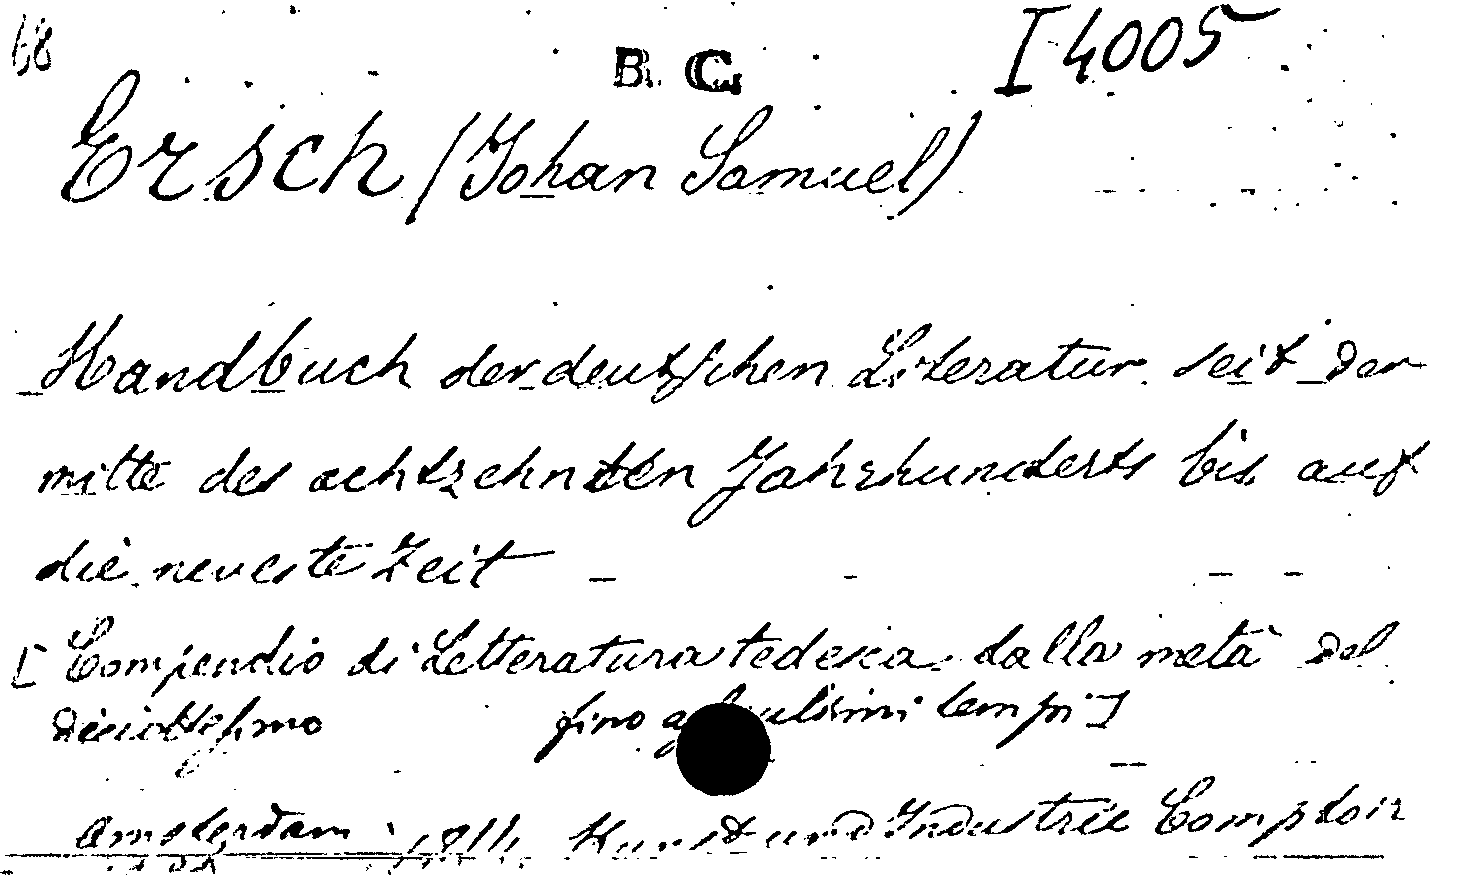 68
B. C.
I 4005
Ersch (Johan Samuel)
Handbuch der deutschen Literatur seit der
mitte des achtzehnten Jahrhunderts bis auf
die neueste Zeit
[Compendio di Letteratura tedesca dalla metà del
diciottesimo fino tempi]
Amsterdam Kunst und Industrie Comptoir